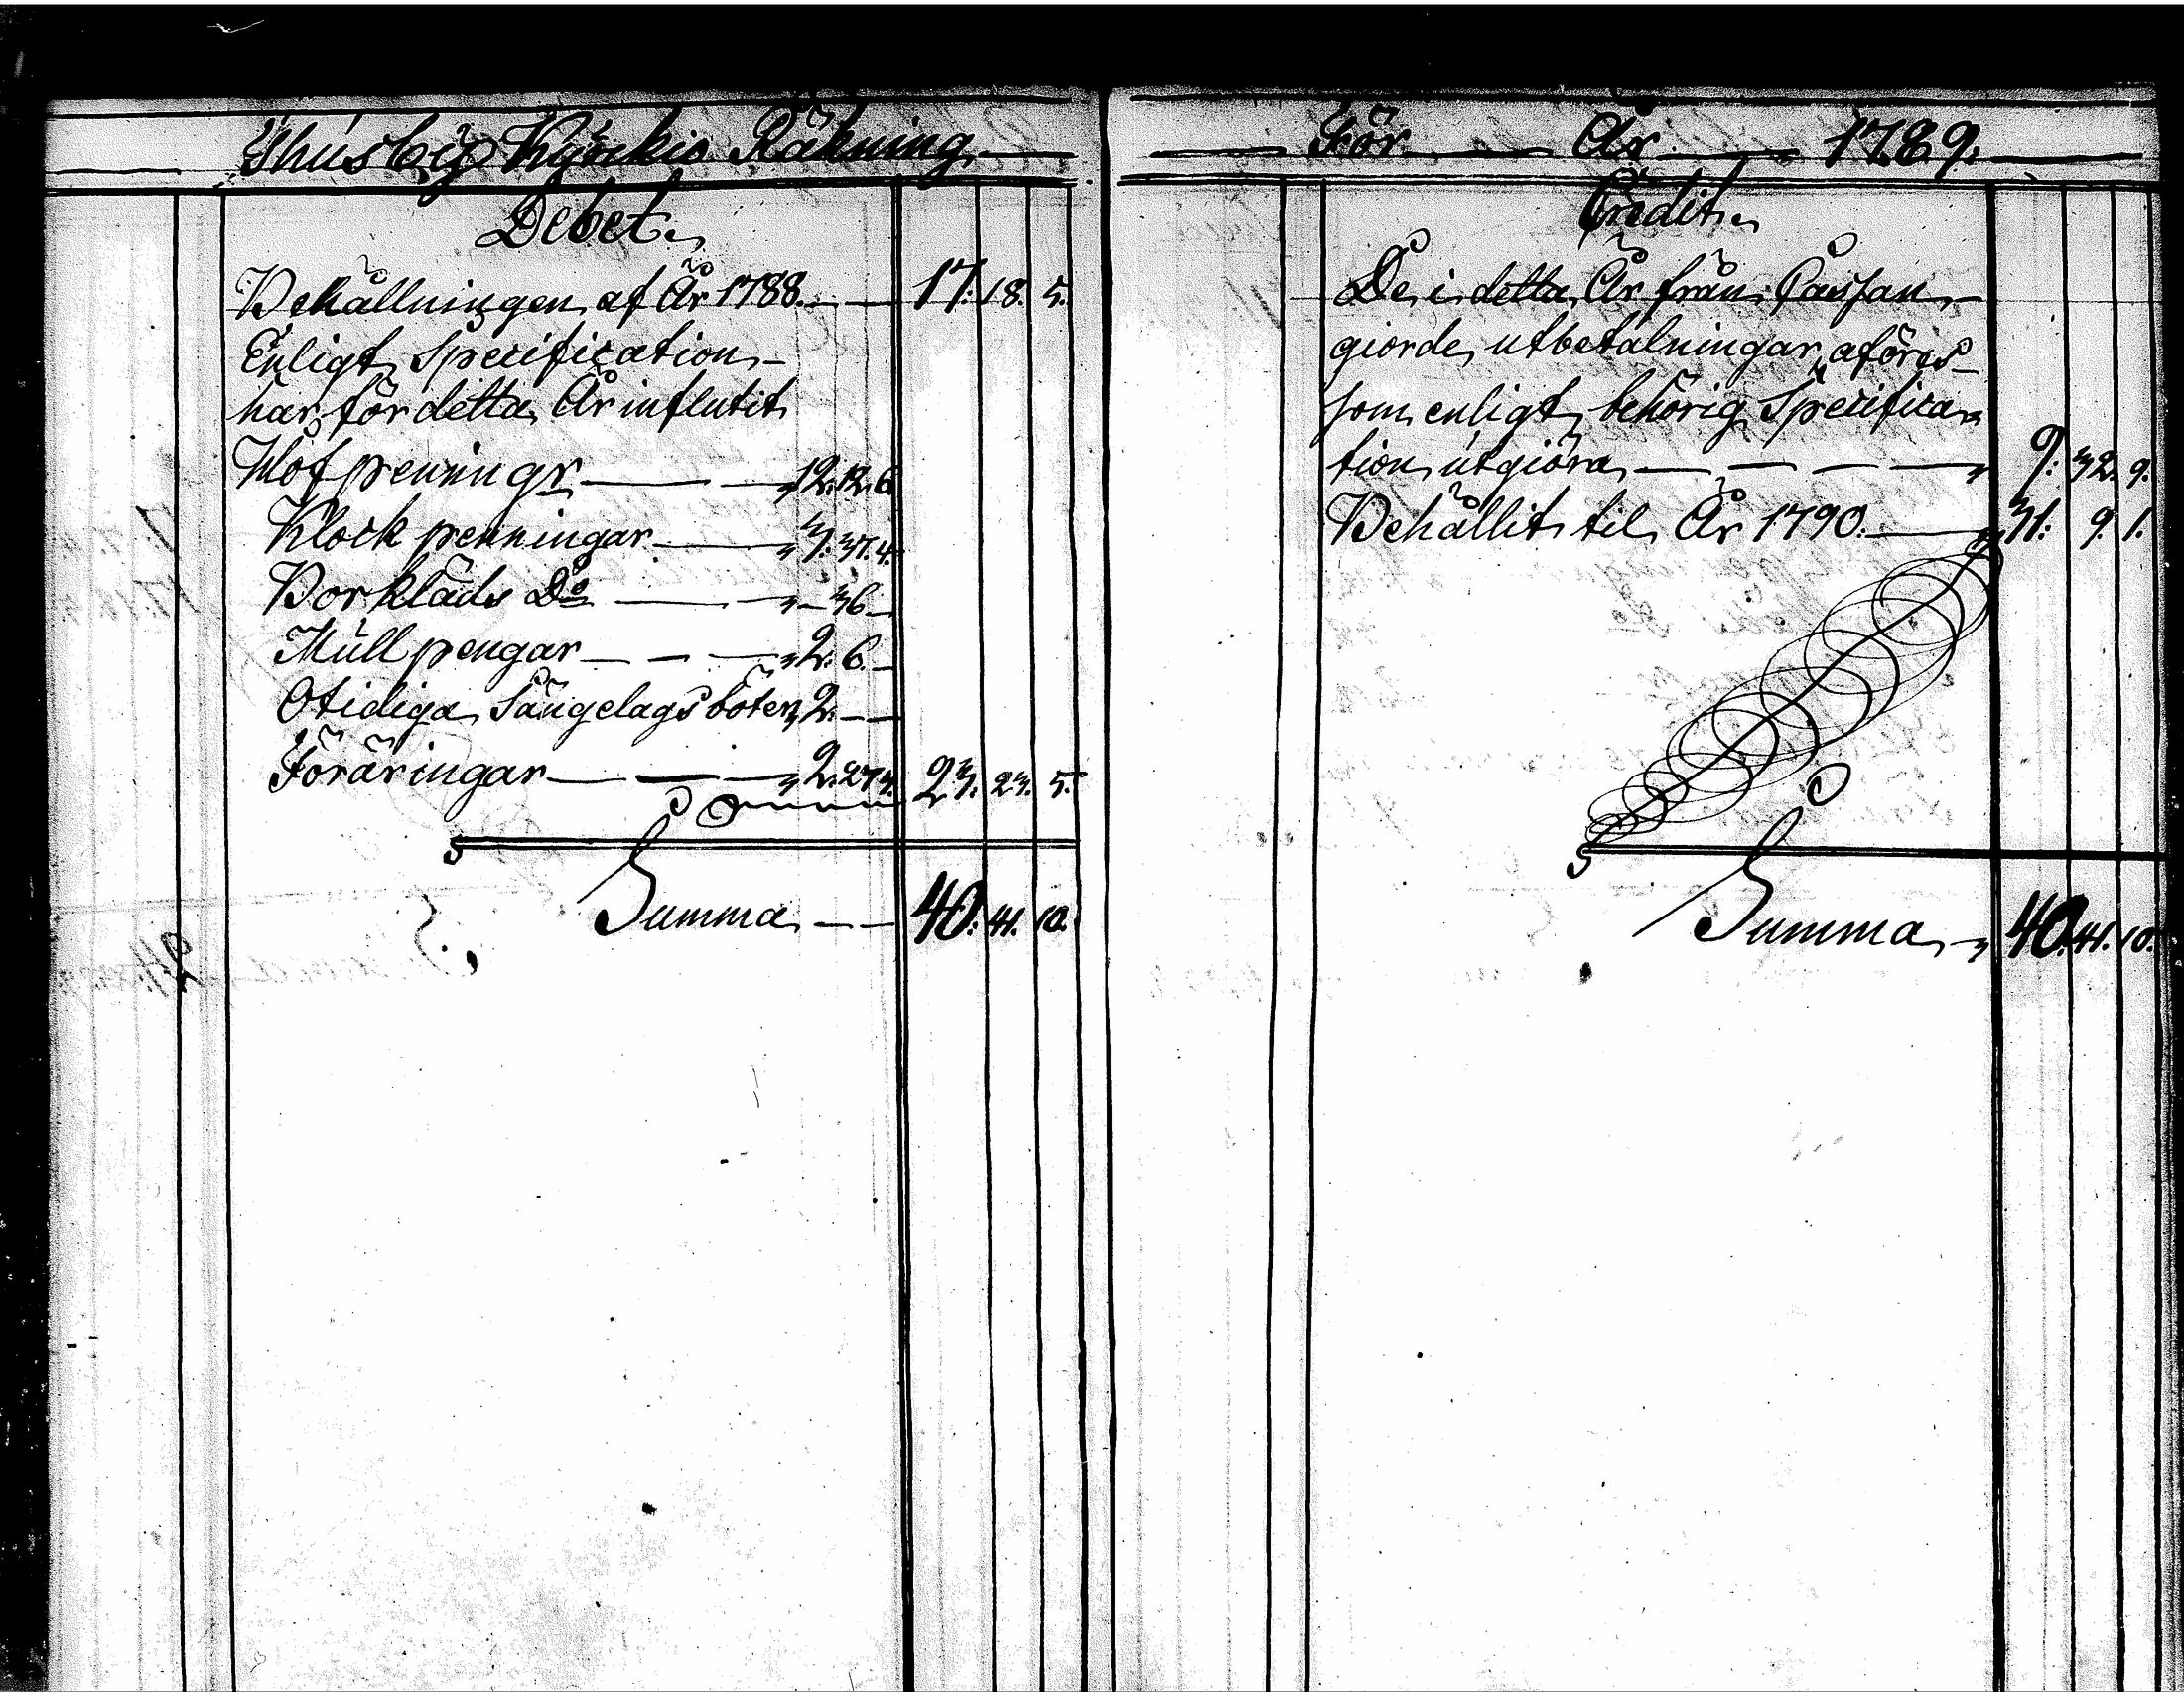 Husbÿ Kyrckio Räkning
Debet.
Behållningen af År 1788. 17. 18. 5.
Enligt Specification
har för detta År influtit
Håfpenningr 12. 12. 6
Klock penningar 3. 37. 4.
Borkläds Do 36
Mull pengar 2. 6.
Otidiga Sängelags böter 2.
Föräringar 2. 27. 7. 23. 23. 5.
Summa 40. 41. 10.
För År 1789.
Credit.
De i detta År från Cassan
giorde utbetalningar aföres
som enligt behörig Specifica
tion utgiöra 9. 32. 9.
Behållit til År 1790. 31. 9. 1.
Summa 40. 41. 10.